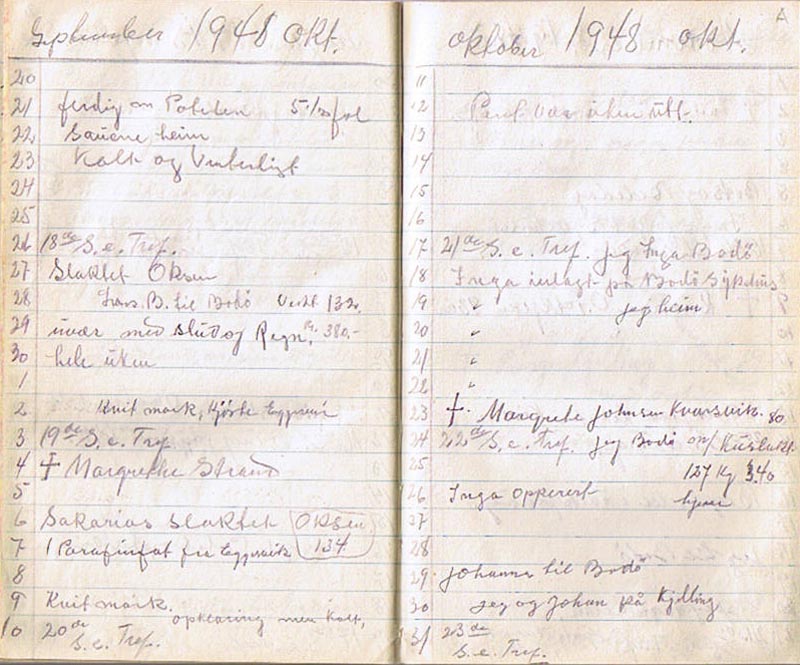 September 1948 Okt.
20
21 ferdig m Poteten 5 1/2 fol
22 Sauene heim
23 Kalt og Vinterligt
24
25
26 18de S. e. Tref.
27 Slaktet Oksen
28 Lars. B. til Bodö Vertl 132.
29 uvær med Slud og Regn. Kr. 380.-
30 hele uken
1
2 Kvit mark, Kjörte
3 19de S. e. Tref.
4 † Margrethe Strand
5
6 Sakarias Slaktet Oksen
7 1 Parafinfat fra Eggesvik 134
8
9 Kvit mark.
10 20de S. e. Tref. opklaring men Kalt,
Oktober 1948 Okt.
11
12 Paul var uken utt.
13
14
15
16
17 21de S. e. Tref. Jeg Inga Bodö
18 Inga inlagt på Bodö Sykehus
19 " jeg heim
20 "
21 "
22 "
23 †. Margrete Johnsen Kvarsvik. 80
24 22de S. e. Tref. Jeg Bodö m/ Kuslakt
25 127 Kg 3.40
26 Inga opperert
27
28
29 Johannes til Bodö
30 Jeg og Johan på Kjelling
31 23de S. e. Tref.